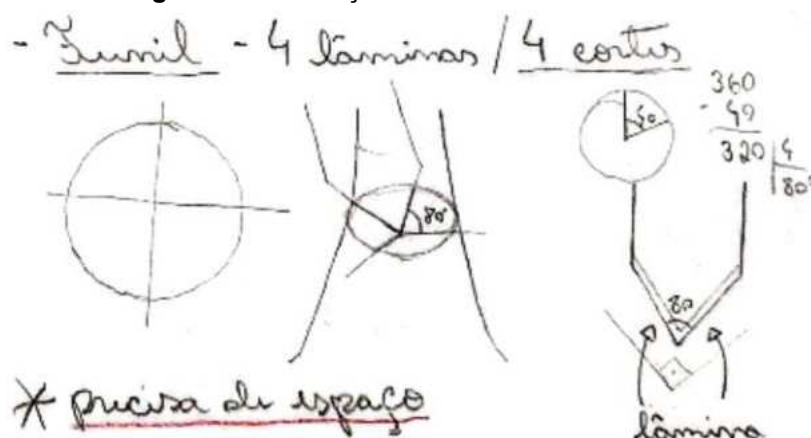 - Funil - 4 lâminas / 4 cortes
360
- 40
320 | 4
80°
40
80°
80
* precisa de espaço
lâmina